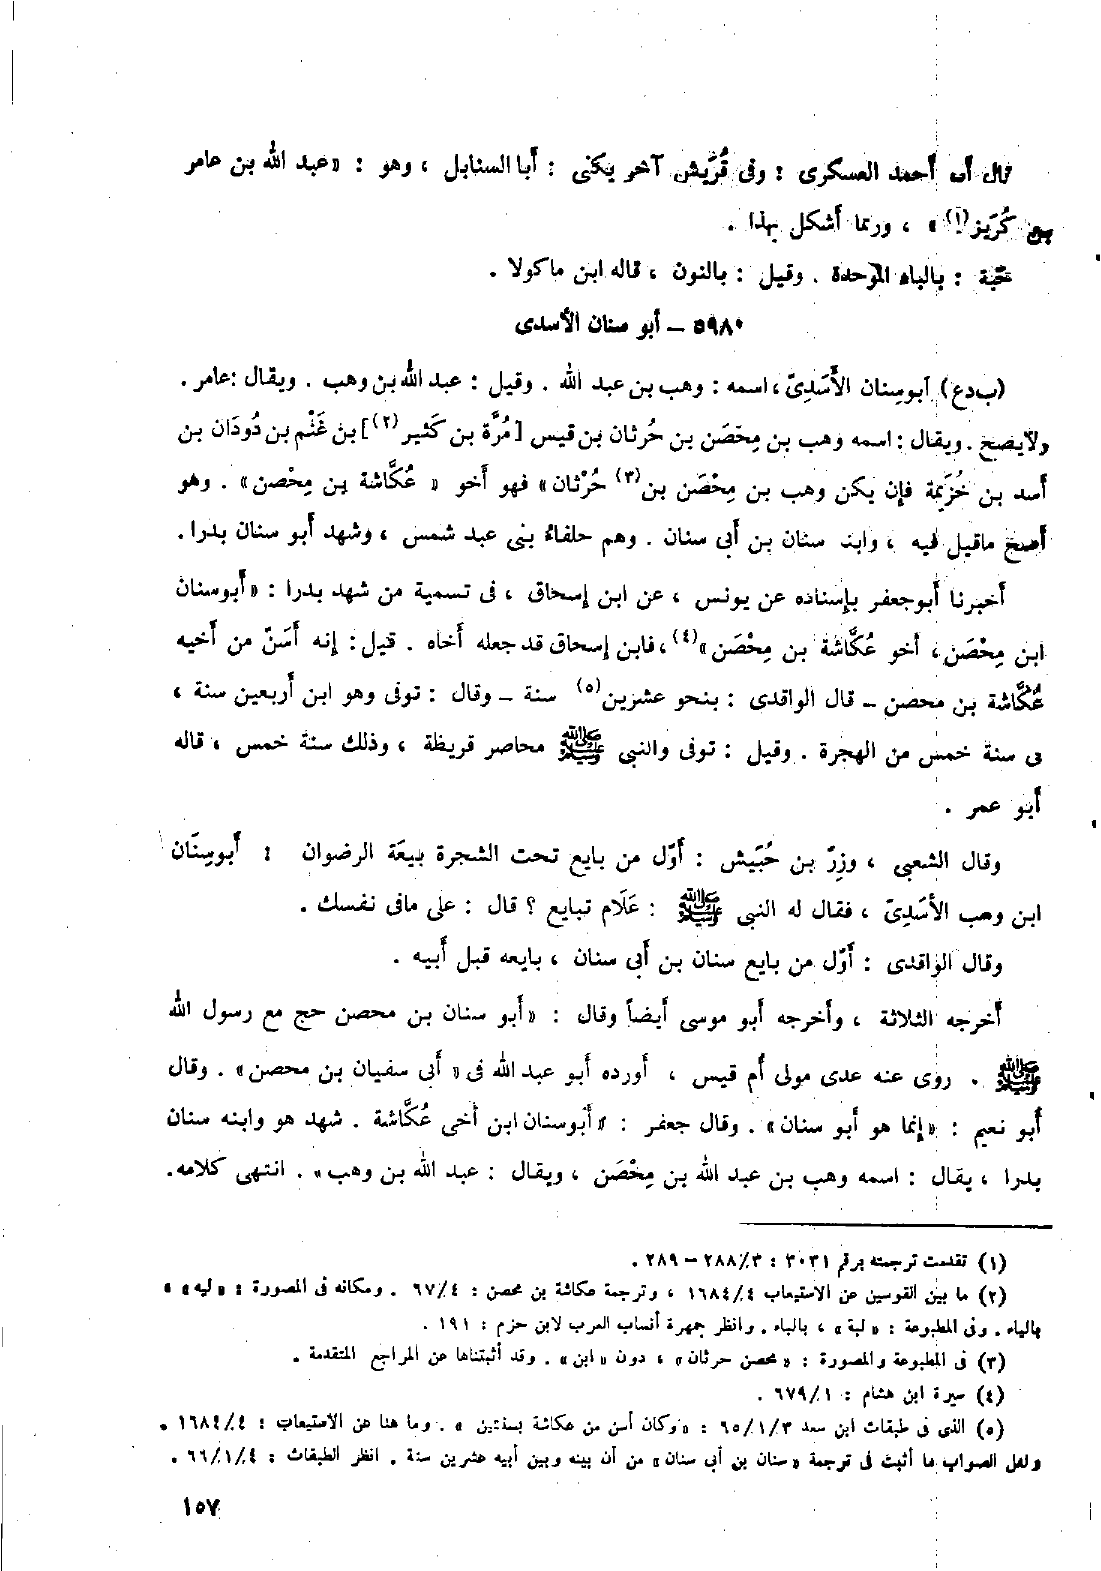 قال أبو أحمد العسكرى : وفى قُرَيش آخر يكنى : أبا السنابل ، وهو : «عبد الله بن عامر
بن كُرَيز(١)» ، وربما أشكل بهذا .
حَبَّة : بالباء الموحدة . وقيل : بالنون ، قاله ابن ماكولا .
٥٩٨٠ – أبو سنان الأسدى
(ب د ع) أبو سِنان الأَسَدِىّ ، اسمه : وهب بن عبد الله . وقيل : عبد الله بن وهب . ويقال : عامر .
ولا يصح . ويقال : اسمه وهب بن مِحْصَن بن حُرثان بن قيس [مُرَّة بن كَثير(٢)] بن غَنْم بن دُودَان بن
أسد بن خُزَيمة فإن يكن وهب بن مِحْصَن بن(٣) حُرْثان» فهو أخو « عُكَّاشة بن مِحْصن» . وهو
أصح ما قيل فيه ، وابنه سنان بن أبى سنان . وهم حلفاءُ بنى عبد شمس ، وشهد أبو سنان بدرا .
أخبرنا أبو جعفر بإسناده عن يونس ، عن ابن إسحاق ، فى تسمية من شهد بدرا : «أبو سنان
ابن مِحْصَن ، أخو عُكَّاشة بن مِحْصَن»(٤) ، فابن إسحاق قد جعله أخاه . قيل : إنه أَسَنّ من أخيه
عُكَّاشة بن محصن – قال الواقدى : بنحو عشرين(٥) سنة – وقال : توفى وهو ابن أربعين سنة ،
فى سنة خمس من الهجرة . وقيل : توفى والنبى ﷺ محاصر قريظة ، وذلك سنة خمس ، قاله
أبو عمر .
وقال الشعبى ، وزِرّ بن حُبَيش : أوّل من بايع تحت الشجرة بيعَة الرضوان : أبو سِنَان
ابن وهب الأَسَدِىّ ، فقال له النبى ﷺ : عَلَام تبايع ؟ قال : على ما فى نفسك .
وقال الواقدى : أوّل من بايع سنان بن أبى سنان ، بايعه قبل أبيه .
أخرجه الثلاثة ، وأخرجه أبو موسى أيضاً وقال : «أبو سنان بن محصن حج مع رسول الله
ﷺ . روى عنه عدى مولى أم قيس ، أورده أبو عبد الله فى « أبى سفيان بن محصن» . وقال
أبو نعيم : «إنما هو أبو سنان» . وقال جعفر : «أبو سنان ابن أخى عُكَّاشة . شهد هو وابنه سنان
بدرا ، يقال : اسمه وهب بن عبد الله بن مِحْصَن ، ويقال : عبد الله بن وهب» . انتهى كلامه .
(١) تقدمت ترجمته برقم ٣٠٣١ : ٣/٢٨٨ – ٢٨٩ .
(٢) ما بين القوسين عن الاستيعاب ٤/١٦٨٤ ، وترجمة عكاشة بن محصن : ٤/٦٧ . ومكانه فى المصورة : «ليه» «
بالياء . وفى المطبوعة : «لبة» ، بالباء . وانظر جمهرة أنساب العرب لابن حزم : ١٩١ .
(٣) فى المطبوعة والمصورة : «محصن حرثان» ، دون «ابن» . وقد أثبتناها عن المراجع المتقدمة .
(٤) سيرة ابن هشام : ١/٦٧٩ .
(٥) الذى فى طبقات ابن سعد ٣/١/٦٥ : «وكان أسن من عكاشة بسنتين » . وما هنا عن الاستيعاب : ٤/١٦٨٤ .
ولعل الصواب ما أثبت فى ترجمة «سنان بن أبى سنان» من أن بينه وبين أبيه عشرين سنة . انظر الطبقات : ٤/١/٦٦ .
١٥٧